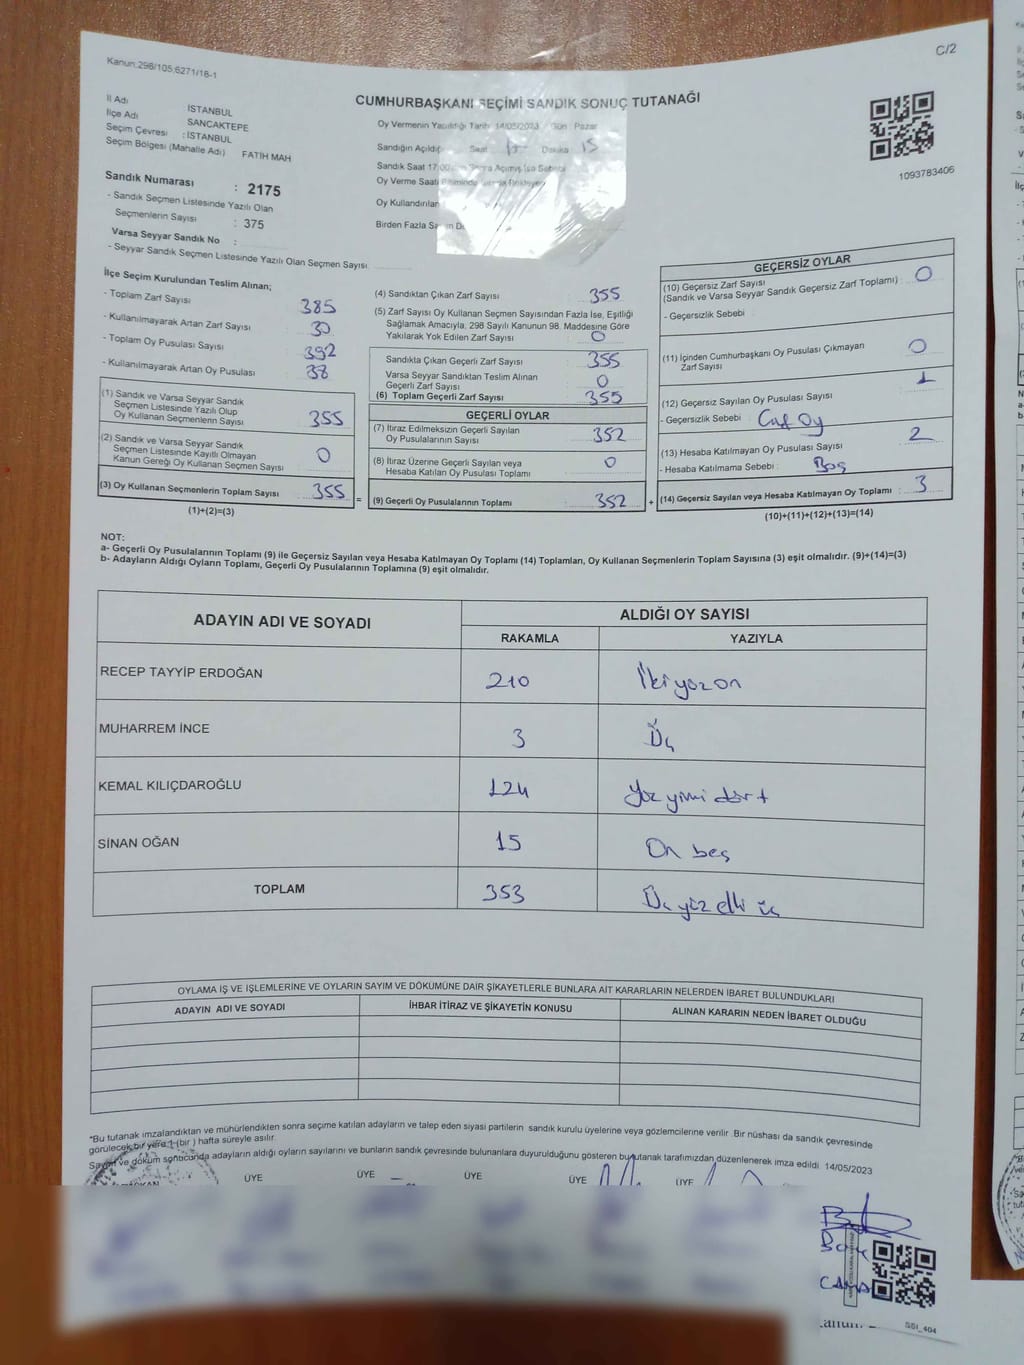 C/2
Kanun:298/105;6271/18-1
CUMHURBAŞKANI SEÇİMİ SANDIK SONUÇ TUTANAĞI
İl Adı İSTANBUL
İlçe Adı SANCAKTEPE
Seçim Çevresi : İSTANBUL
Seçim Bölgesi (Mahalle Adı) FATİH MAH
Sandık Numarası : 2175
- Sandık Seçmen Listesinde Yazılı Olan
Seçmenlerin Sayısı : 375
Varsa Seyyar Sandık No :
- Seyyar Sandık Seçmen Listesinde Yazılı Olan Seçmen Sayısı
Oy Vermenin Yapıldığı Tarih 14/05/2023 Gün : Pazar
Sandığın Açıldığı Saat Dakika 15
Sandık Saat 17:00 Sonra Açılmış İse Sebebi
Oy Verme Saati Bitiminde
Oy Kullandırılan
Birden Fazla
1093783406
İlçe Seçim Kurulundan Teslim Alınan;
- Toplam Zarf Sayısı 385
- Kullanılmayarak Artan Zarf Sayısı 30
- Toplam Oy Pusulası Sayısı 392
- Kullanılmayarak Artan Oy Pusulası 38
(1) Sandık ve Varsa Seyyar Sandık
Seçmen Listesinde Yazılı Olup
Oy Kullanan Seçmenlerin Sayısı 355
(2) Sandık ve Varsa Seyyar Sandık
Seçmen Listesinde Kayıtlı Olmayan
Kanun Gereği Oy Kullanan Seçmen Sayısı 0
(3) Oy Kullanan Seçmenlerin Toplam Sayısı : 355 =
(1)+(2)=(3)
(4) Sandıktan Çıkan Zarf Sayısı : 355
(5) Zarf Sayısı Oy Kullanan Seçmen Sayısından Fazla İse, Eşitliği
Sağlamak Amacıyla, 298 Sayılı Kanunun 98. Maddesine Göre
Yakılarak Yok Edilen Zarf Sayısı : 0
Sandıkta Çıkan Geçerli Zarf Sayısı : 355
Varsa Seyyar Sandıktan Teslim Alınan
Geçerli Zarf Sayısı : 0
(6) Toplam Geçerli Zarf Sayısı : 355
GEÇERLİ OYLAR
(7) İtiraz Edilmeksizin Geçerli Sayılan
Oy Pusulalarının Sayısı : 352
(8) İtiraz Üzerine Geçerli Sayılan veya
Hesaba Katılan Oy Pusulası Toplamı : 0
(9) Geçerli Oy Pusulalarının Toplamı : 352 +
GEÇERSİZ OYLAR
(10) Geçersiz Zarf Sayısı
(Sandık ve Varsa Seyyar Sandık Geçersiz Zarf Toplamı) : 0
- Geçersizlik Sebebi :
(11) İçinden Cumhurbaşkanı Oy Pusulası Çıkmayan
Zarf Sayısı : 0
(12) Geçersiz Sayılan Oy Pusulası Sayısı 1
- Geçersizlik Sebebi : Oy
(13) Hesaba Katılmayan Oy Pusulası Sayısı 2
- Hesaba Katılmama Sebebi : Boş
(14) Geçersiz Sayılan veya Hesaba Katılmayan Oy Toplamı : 3
(10)+(11)+(12)+(13)=(14)
NOT:
a- Geçerli Oy Pusulalarının Toplamı (9) ile Geçersiz Sayılan veya Hesaba Katılmayan Oy Toplamı (14) Toplamları, Oy Kullanan Seçmenlerin Toplam Sayısına (3) eşit olmalıdır. (9)+(14)=(3)
b- Adayların Aldığı Oyların Toplamı, Geçerli Oy Pusulalarının Toplamına (9) eşit olmalıdır.
ADAYIN ADI VE SOYADI ALDIĞI OY SAYISI
RAKAMLA YAZIYLA
RECEP TAYYİP ERDOĞAN 210 İkiyüzon
MUHARREM İNCE 3 Üç
KEMAL KILIÇDAROĞLU 124 Yüz yirmi dört
SİNAN OĞAN 15 On beş
TOPLAM 353 Üç yüz elli üç
OYLAMA İŞ VE İŞLEMLERİNE VE OYLARIN SAYIM VE DÖKÜMÜNE DAİR ŞİKAYETLERLE BUNLARA AİT KARARLARIN NELERDEN İBARET BULUNDUKLARI
ADAYIN ADI VE SOYADI İHBAR İTİRAZ VE ŞİKAYETİN KONUSU ALINAN KARARIN NEDEN İBARET OLDUĞU
*Bu tutanak imzalandıktan ve mühürlendikten sonra seçime katılan adayların ve talep eden siyasi partilerin sandık kurulu üyelerine veya gözlemcilerine verilir .Bir nüshası da sandık çevresinde
görülecek bir yere 1 (bir ) hafta süreyle asılır.
Sayım ve döküm sonucunda adayların aldığı oyların sayılarını ve bunların sandık çevresinde bulunanlara duyurulduğunu gösteren bu tutanak tarafımızdan düzenlenerek imza edildi. 14/05/2023
ÜYE ÜYE ÜYE ÜYE ÜYE
SSI_404